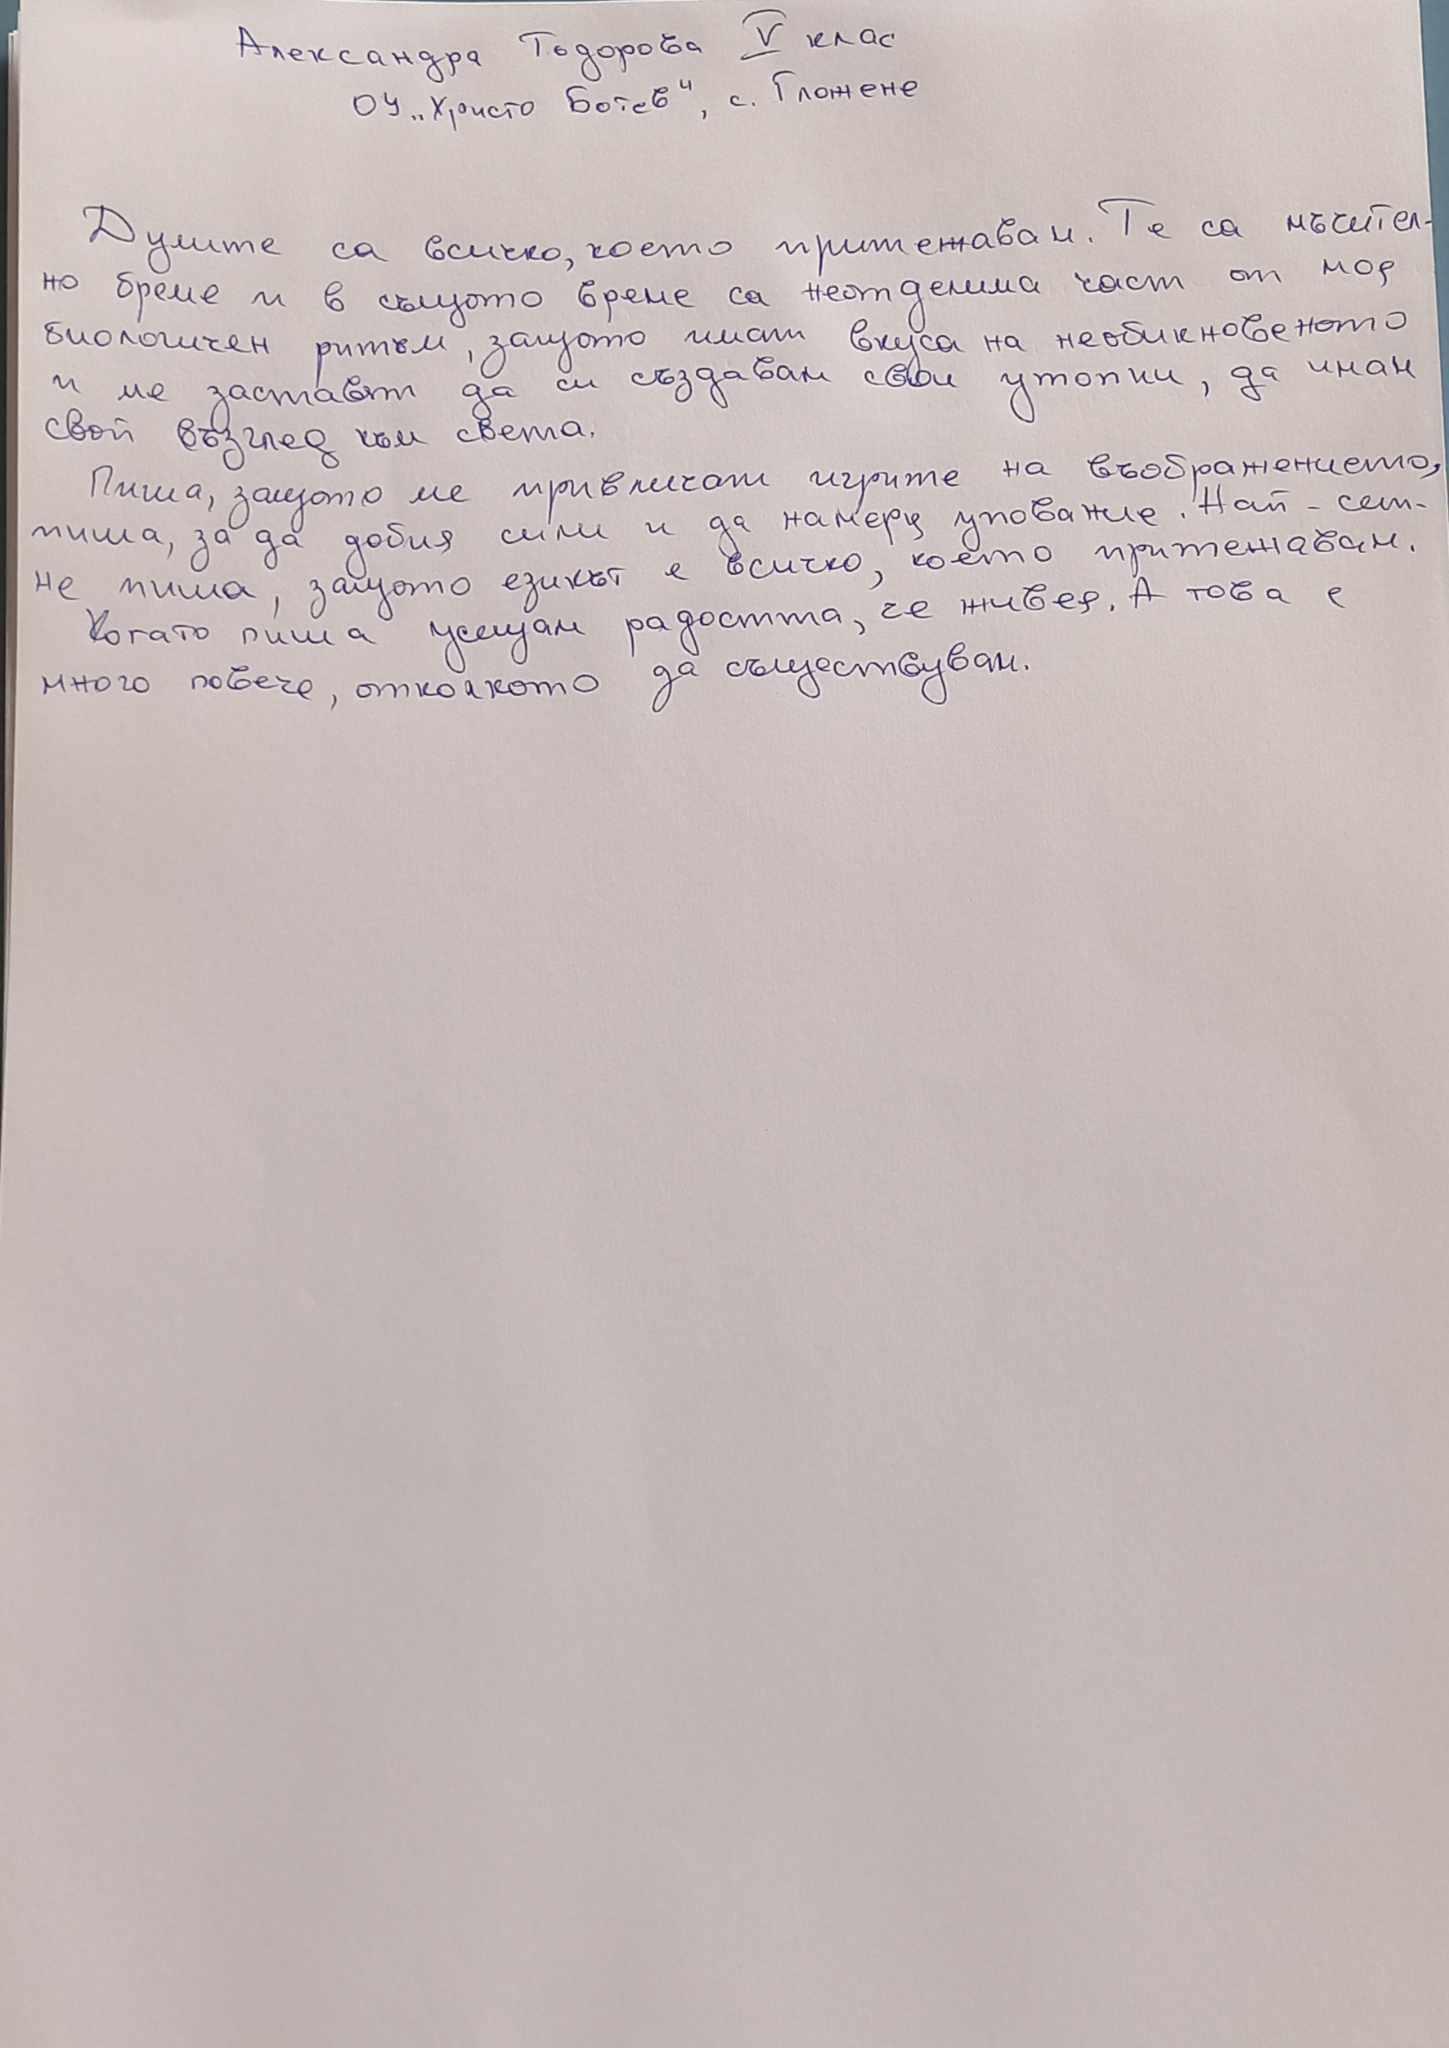 Александра Тодорова V клас
ОУ „Христо Ботев", с. Гложене
Думите са всичко, което притежавам. Те са мъчител-
но бреме и в същото време са неотделима част от моя
биологичен ритъм, защото имат вкуса на необикновеното
и ме заставят да си създавам свои утопии, да имам
свой възглед към света.
Пиша, защото ме привличат игрите на въображението,
пиша, за да добия сили и да намеря упование. Най-сет-
не пиша, защото езикът е всичко, което притежавам.
Когато пиша усещам радостта, че живея. А това е
много повече, отколкото да съществувам.